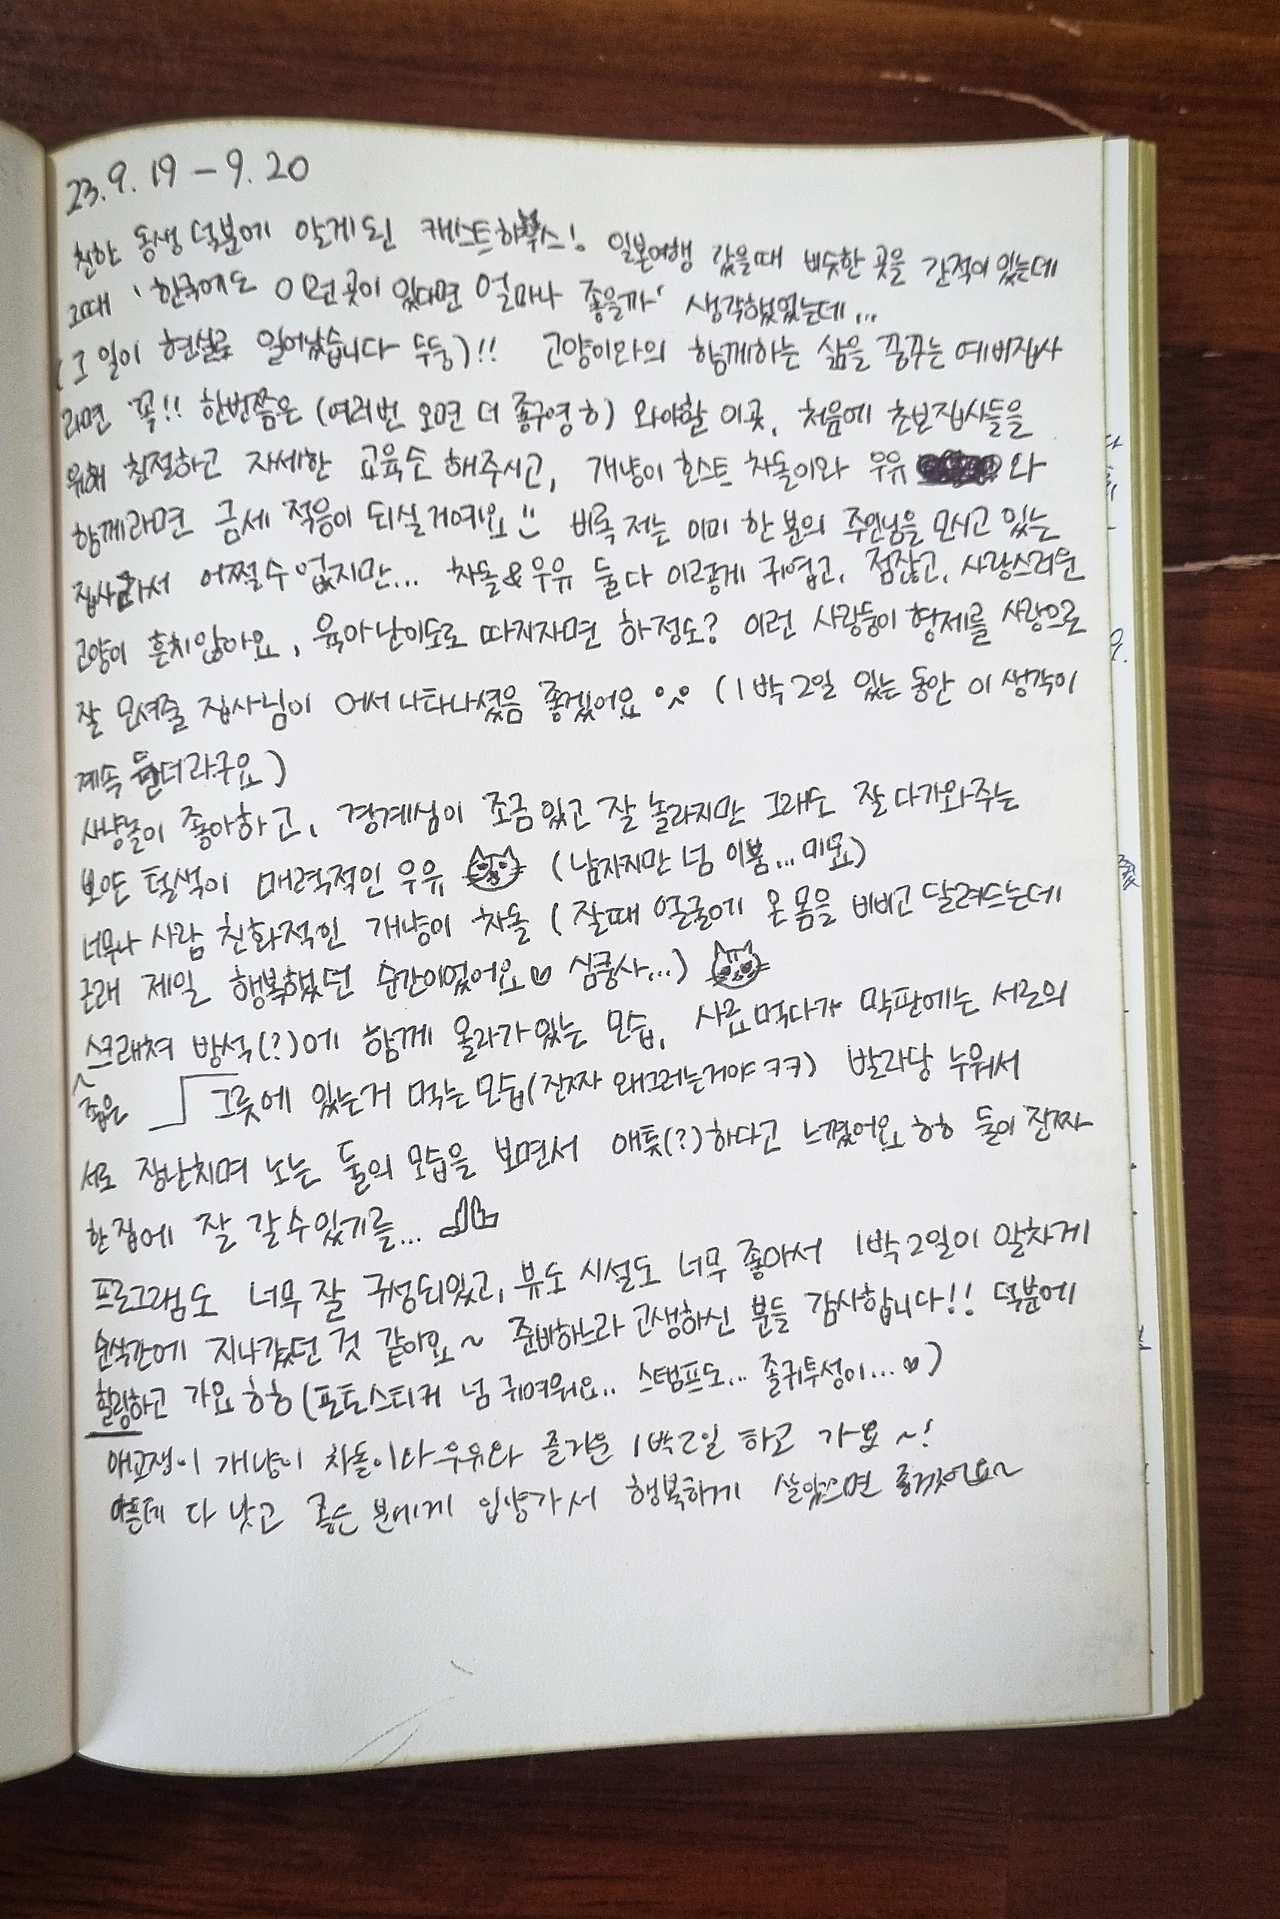 23.9.19 - 9.20
친한 동생 덕분에 알게된 캐스트하우스! 일본여행 갔을때 비슷한 곳을 간적이 있는데
그때 '한국에도 이런곳이 있다면 얼마나 좋을까' 생각했었는데...
(그 일이 현실로 일어났습니다 두둥)!! 고양이와의 함께하는 삶을 꿈꾸는 예비집사
라면 꼭!! 한번쯤은 (여러번 오면 더 좋구영ㅎ) 와야할 이곳, 처음에 초보집사들을
위해 친절하고 자세한 교육도 해주시고, 개냥이 호스트 차돌이와 우유 와
함께라면 금세 적응이 되실거에요 비록 저는 이미 한 분의 주인님을 모시고 있는
집사라서 어쩔수 없지만... 차돌&우유 둘다 이렇게 귀엽고, 점잖고, 사랑스러운
고양이 흔치않아요, 육아난이도로 따지자면 하정도? 이런 사랑둥이 형제를 사랑으로
잘 모셔줄 집사님이 어서 나타나셨음 좋겠어요 (1박2일 있는 동안 이 생각이
계속 들더라구요)
사냥놀이 좋아하고, 경계심이 조금있고 잘 놀라지만 그래도 잘 다가와주는
보얀 털색이 매력적인 우유 (남자지만 넘 이쁨...미묘)
너무나 사람 친화적인 개냥이 차돌 (잘때 얼굴에 온 몸을 비비고 달려드는데
근래 제일 행복했던 순간이었어요♡ 심쿵사...)
스크래쳐 방석(?)에 함께 올라가있는 모습, 사료먹다가 막판에는 서로의
좁은 그릇에 있는거 먹는 모습(진짜 왜그러는거야 ㅋㅋ) 발라당 누워서
서로 장난치며 노는 둘의 모습을 보면서 애틋(?)하다고 느꼈어요 ㅎㅎ 둘이 진짜
한 집에 잘 갈수있기를...
프로그램도 너무 잘 구성되있고, 뷰도 시설도 너무 좋아서 1박2일이 알차게
순식간에 지나갔던 것 같아요~ 준비하느라 고생하신 분들 감사합니다!! 덕분에
힐링하고 가요 ㅎㅎ (포토스티커 넘 귀여워요.. 스탬프도... 졸귀투성이...♡)
애교쟁이 개냥이 차돌이와 우유와 즐거운 1박2일 하고 가요~!
아픈데 다 낫고 좋은 분에게 입양가서 행복하게 살았으면 좋겠어요~